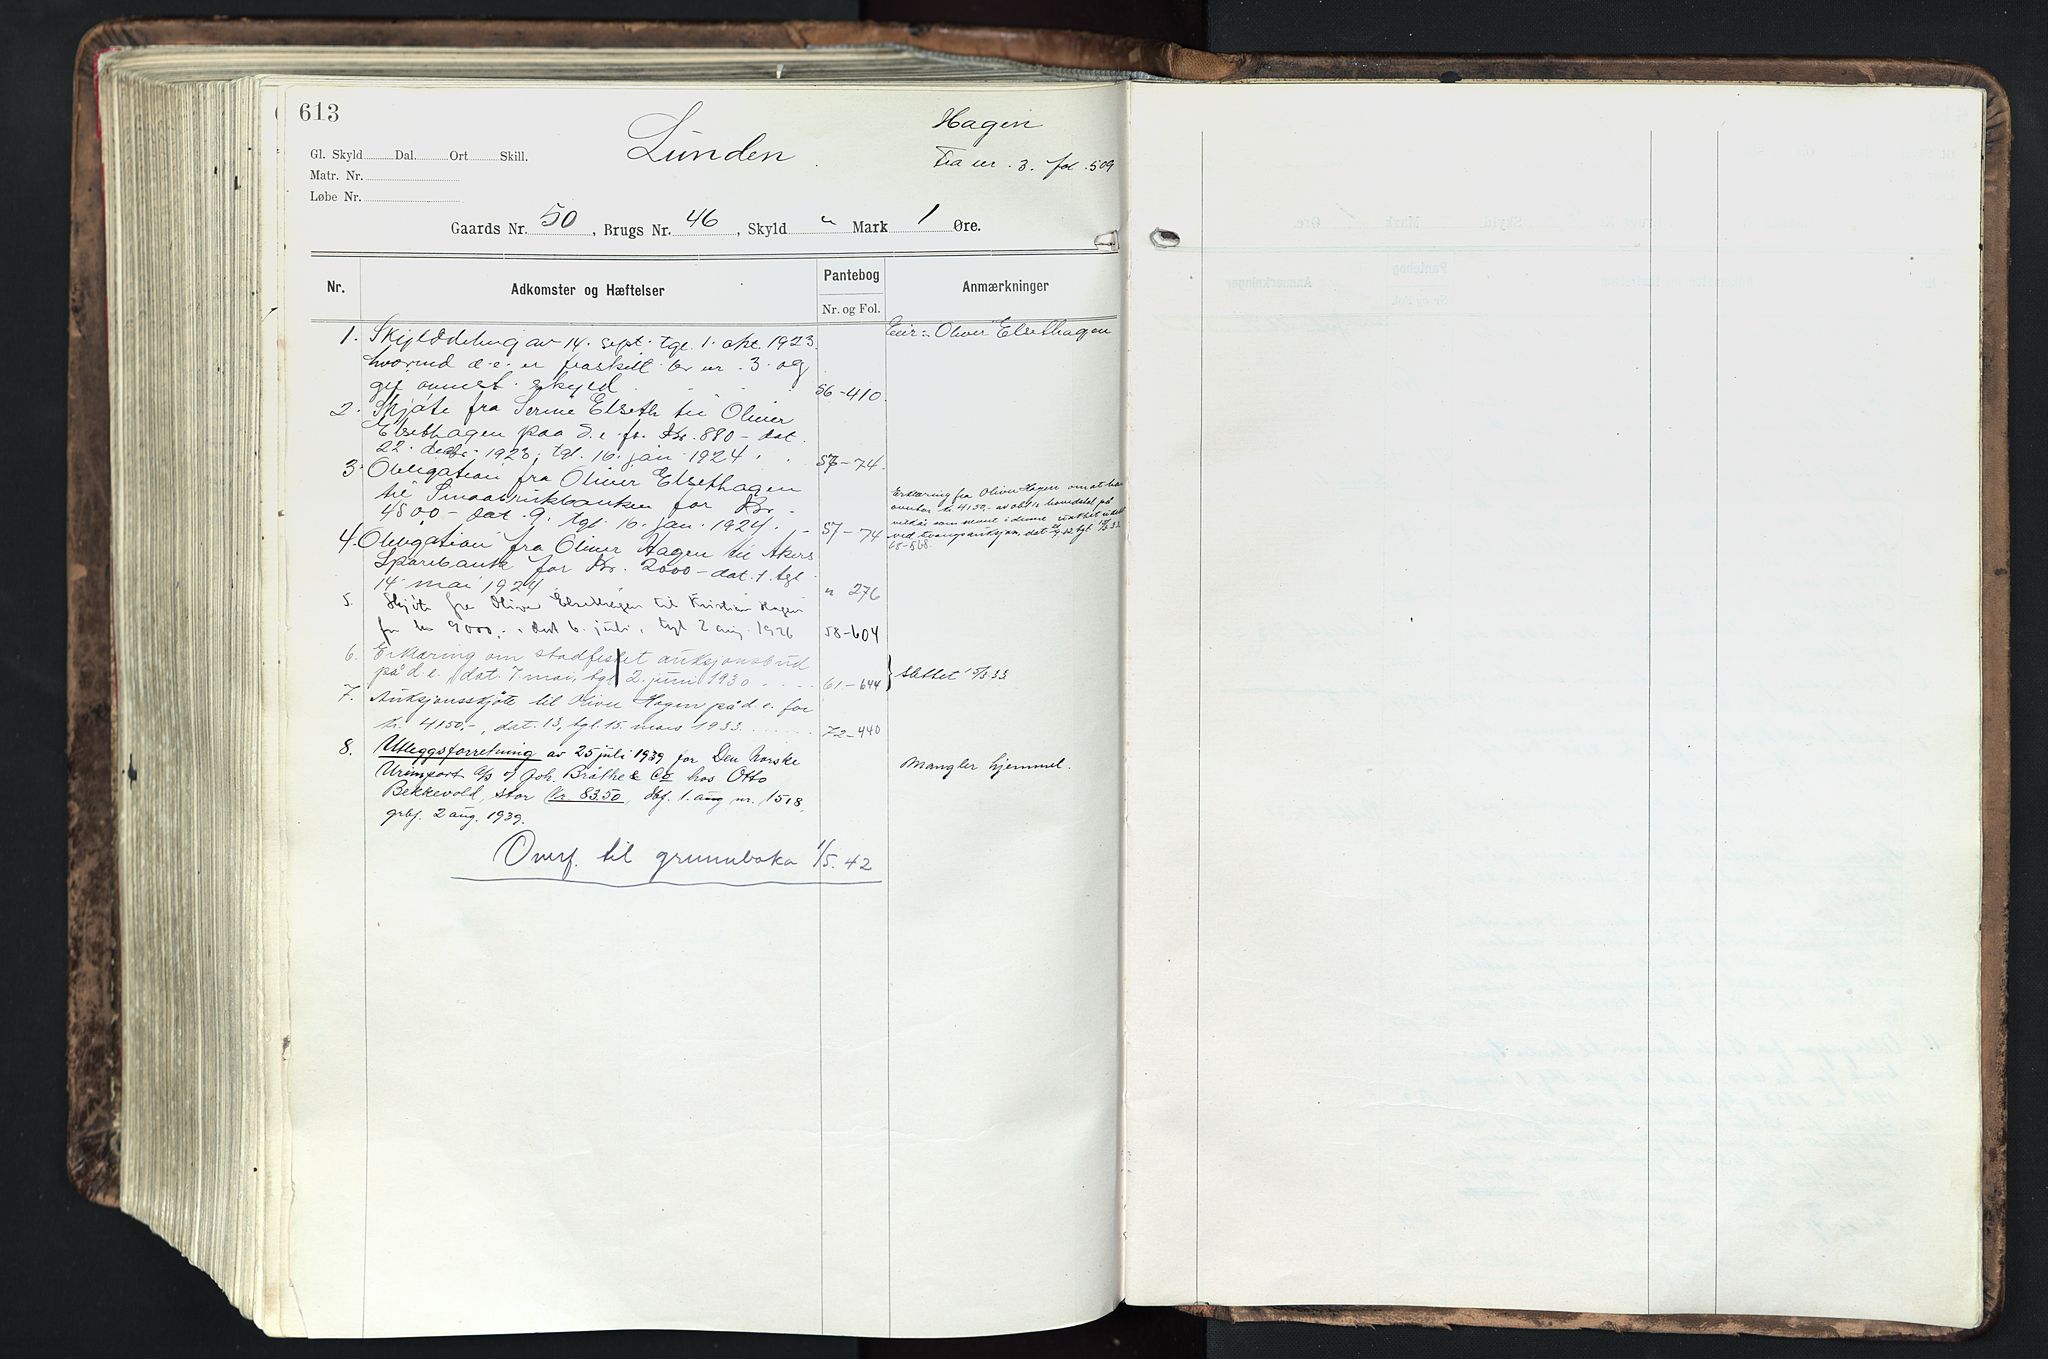 613
Lunden
Hagen
Fra nr. 3. fol. 509
Gl. Skyld Dal. Ort Skill.
Matr. Nr.
Løbe Nr.
Gaards Nr. 50, Brugs Nr. 46, Skyld " Mark 1 Øre.
Nr. Adkomster og Hæftelser Pantebog Anmærkninger
Nr. og Fol.
1. Skylddeling av 14. sept. tgl. 1. okt. 1923 Eier: Oliver Elsethagen
hvorved d.e. er fraskilt br nr. 3 og
git ovennt. skyld 56-410.
2. Skjøte fra Serine Elseth til Oliver
Elsethagen paa d.e. for Kr. 880- dat.
22. decbr. 1923, tgl. 16. jan 1924. 57-74.
3. Obligation fra Oliver Elsethagen
til Smaabrukbanken for Kr.
4500- dat. 9. tgl. 16. jan. 1924. 57-74
Erklæring fra Oliver Hagen om at han
overtar kr. 4150,- av obl.s hovedstol på
vilkår som nevnt i denne
ved tvangsauksjon, dat.
68-568.
4. Obligation fra Oliver Hagen til Akers
Sparebank for Kr. 2000- dat. 1. tgl.
14. mai 1924 " 276
5. Skjøte fra Oliver Elsethagen til Kristian Hagen
for kr 9000,-, dat 6. juli, tgl 2 aug. 1926 58-604
6. Erklæring om stadfestet auksjonsbud
på d.e., dat. 7 mai, tgl 2. juni 1930 61-644 slettet 15/3 33
7. Auksjonsskjøte til Oliver Hagen på d.e. for
kr. 4150,-, dat. 13, tgl. 15. mars 1933 72-440
8. Utleggsforretning av 25 juli 1939 for Den Norske
Urimport A/S v/ Joh. Bråthe & Co hos Otto
Bekkevold, stor kr. 83.50, dbf. 1. aug nr. 1518,
grbf. 2 aug. 1939.
Mangler hjemmel.
Overf. til grunnboka 1/5. 42